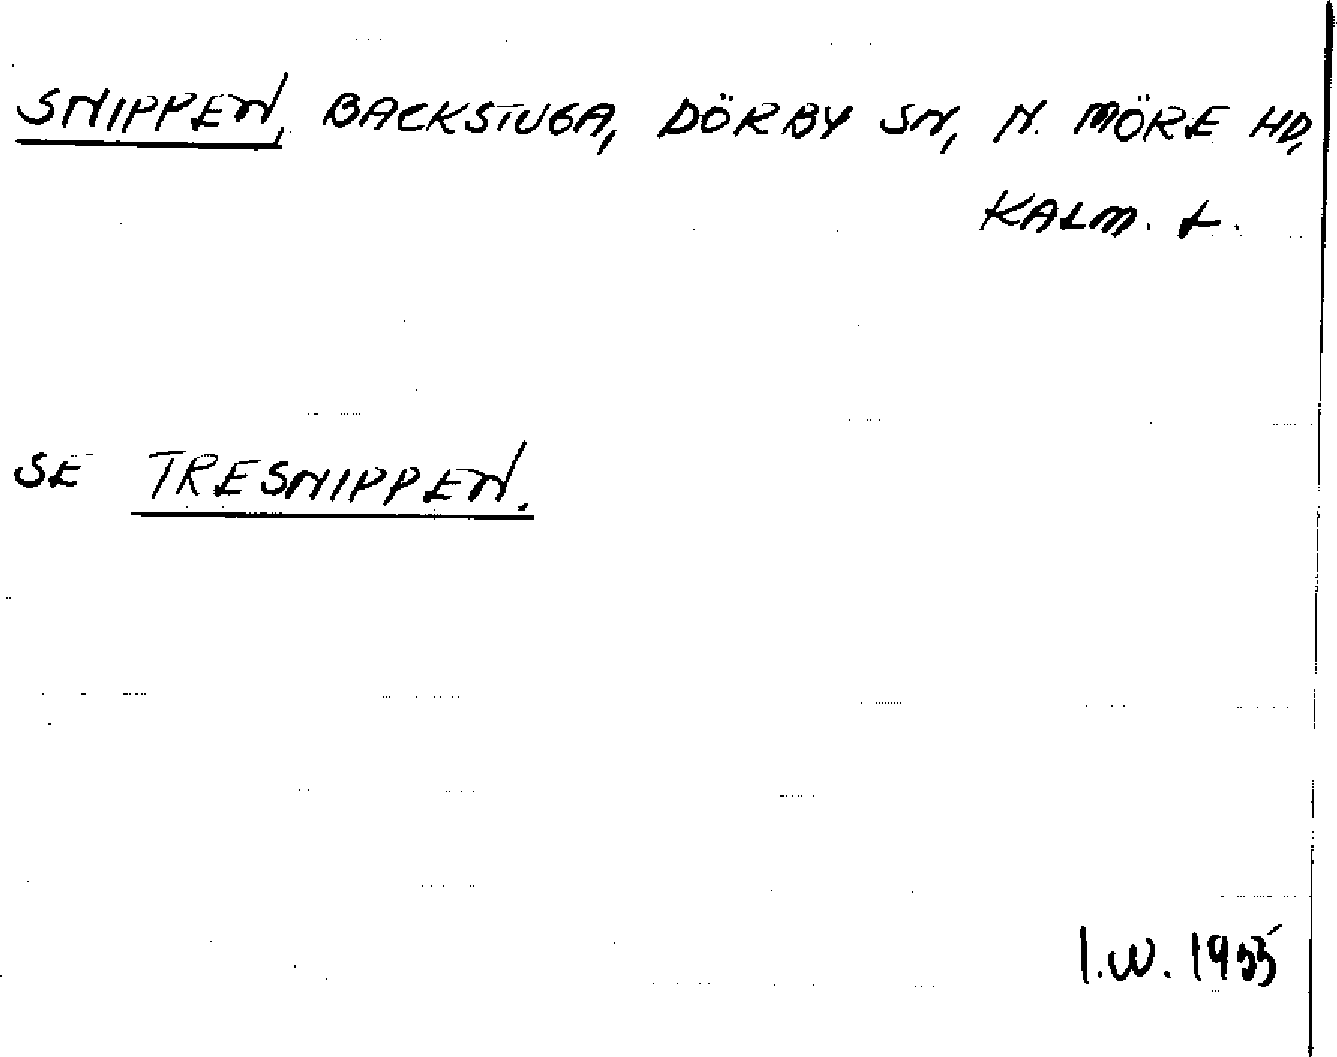 SNIPPEN, BACKSTUGA, DÖRBY SN, N. MÖRE HD,
KALM. L.
SE TRESNIPPEN.
I.W. 1955